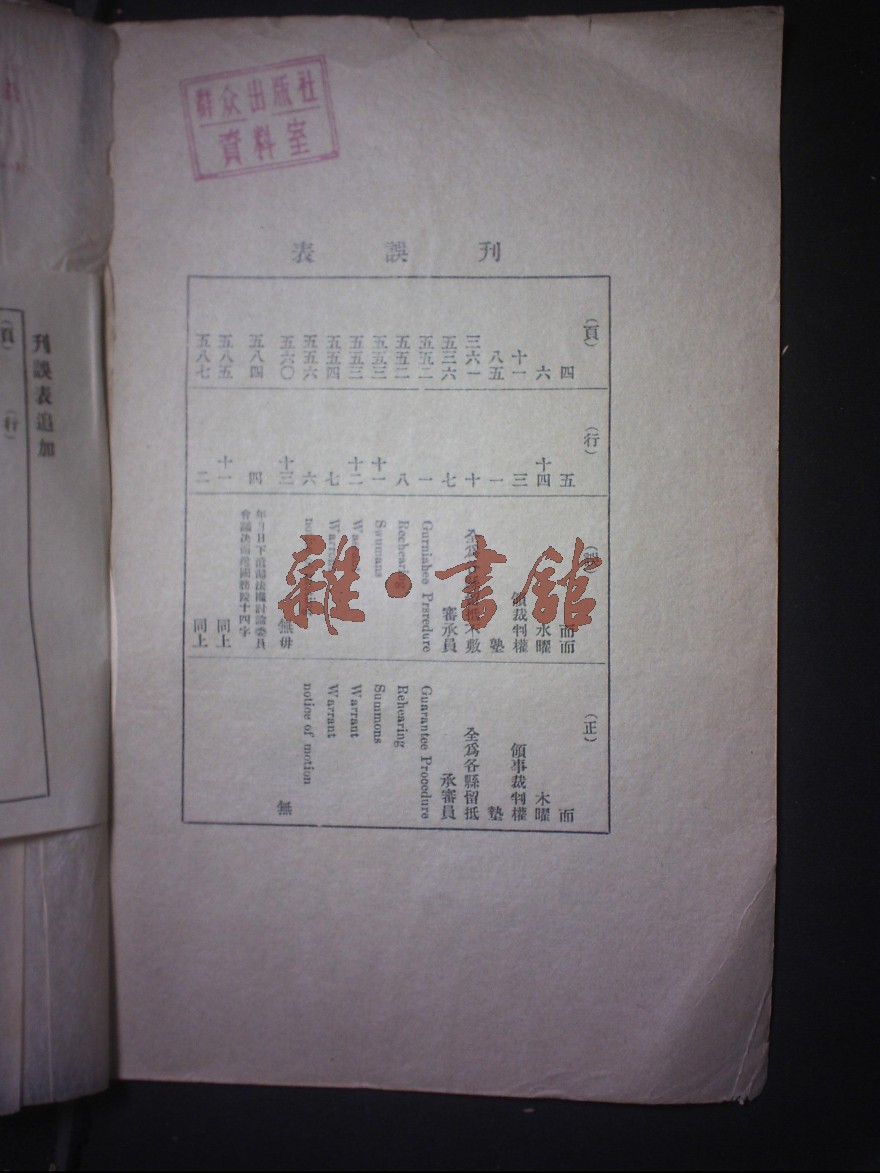 群众出版社
資料室
刊誤表
(頁) (行) (誤) (正)
四 五 面面 面
六 十四 水曜 木曜
十一 三 領裁判權 領事裁判權
八五 一 塾 塾
三六一 十 全為 不敷 全為各縣留抵
五三六 七 審承員 承審員
五五二 一 Gurniahee Praredure Guarantee Procedure
五五二 八 Recbearing Rehearing
五五三 十一 Swumans Summons
五五三 十二 Warrant
五五四 七 Warrant
五五六 六 notice of motion
五六〇 十三 無毋 無
五八四 四 年月日下 法權討論委員
會議決 國務院十四字
五八五 十一 同上
五八七 二 同上
刊誤表追加
(頁) (行)
雜·書館